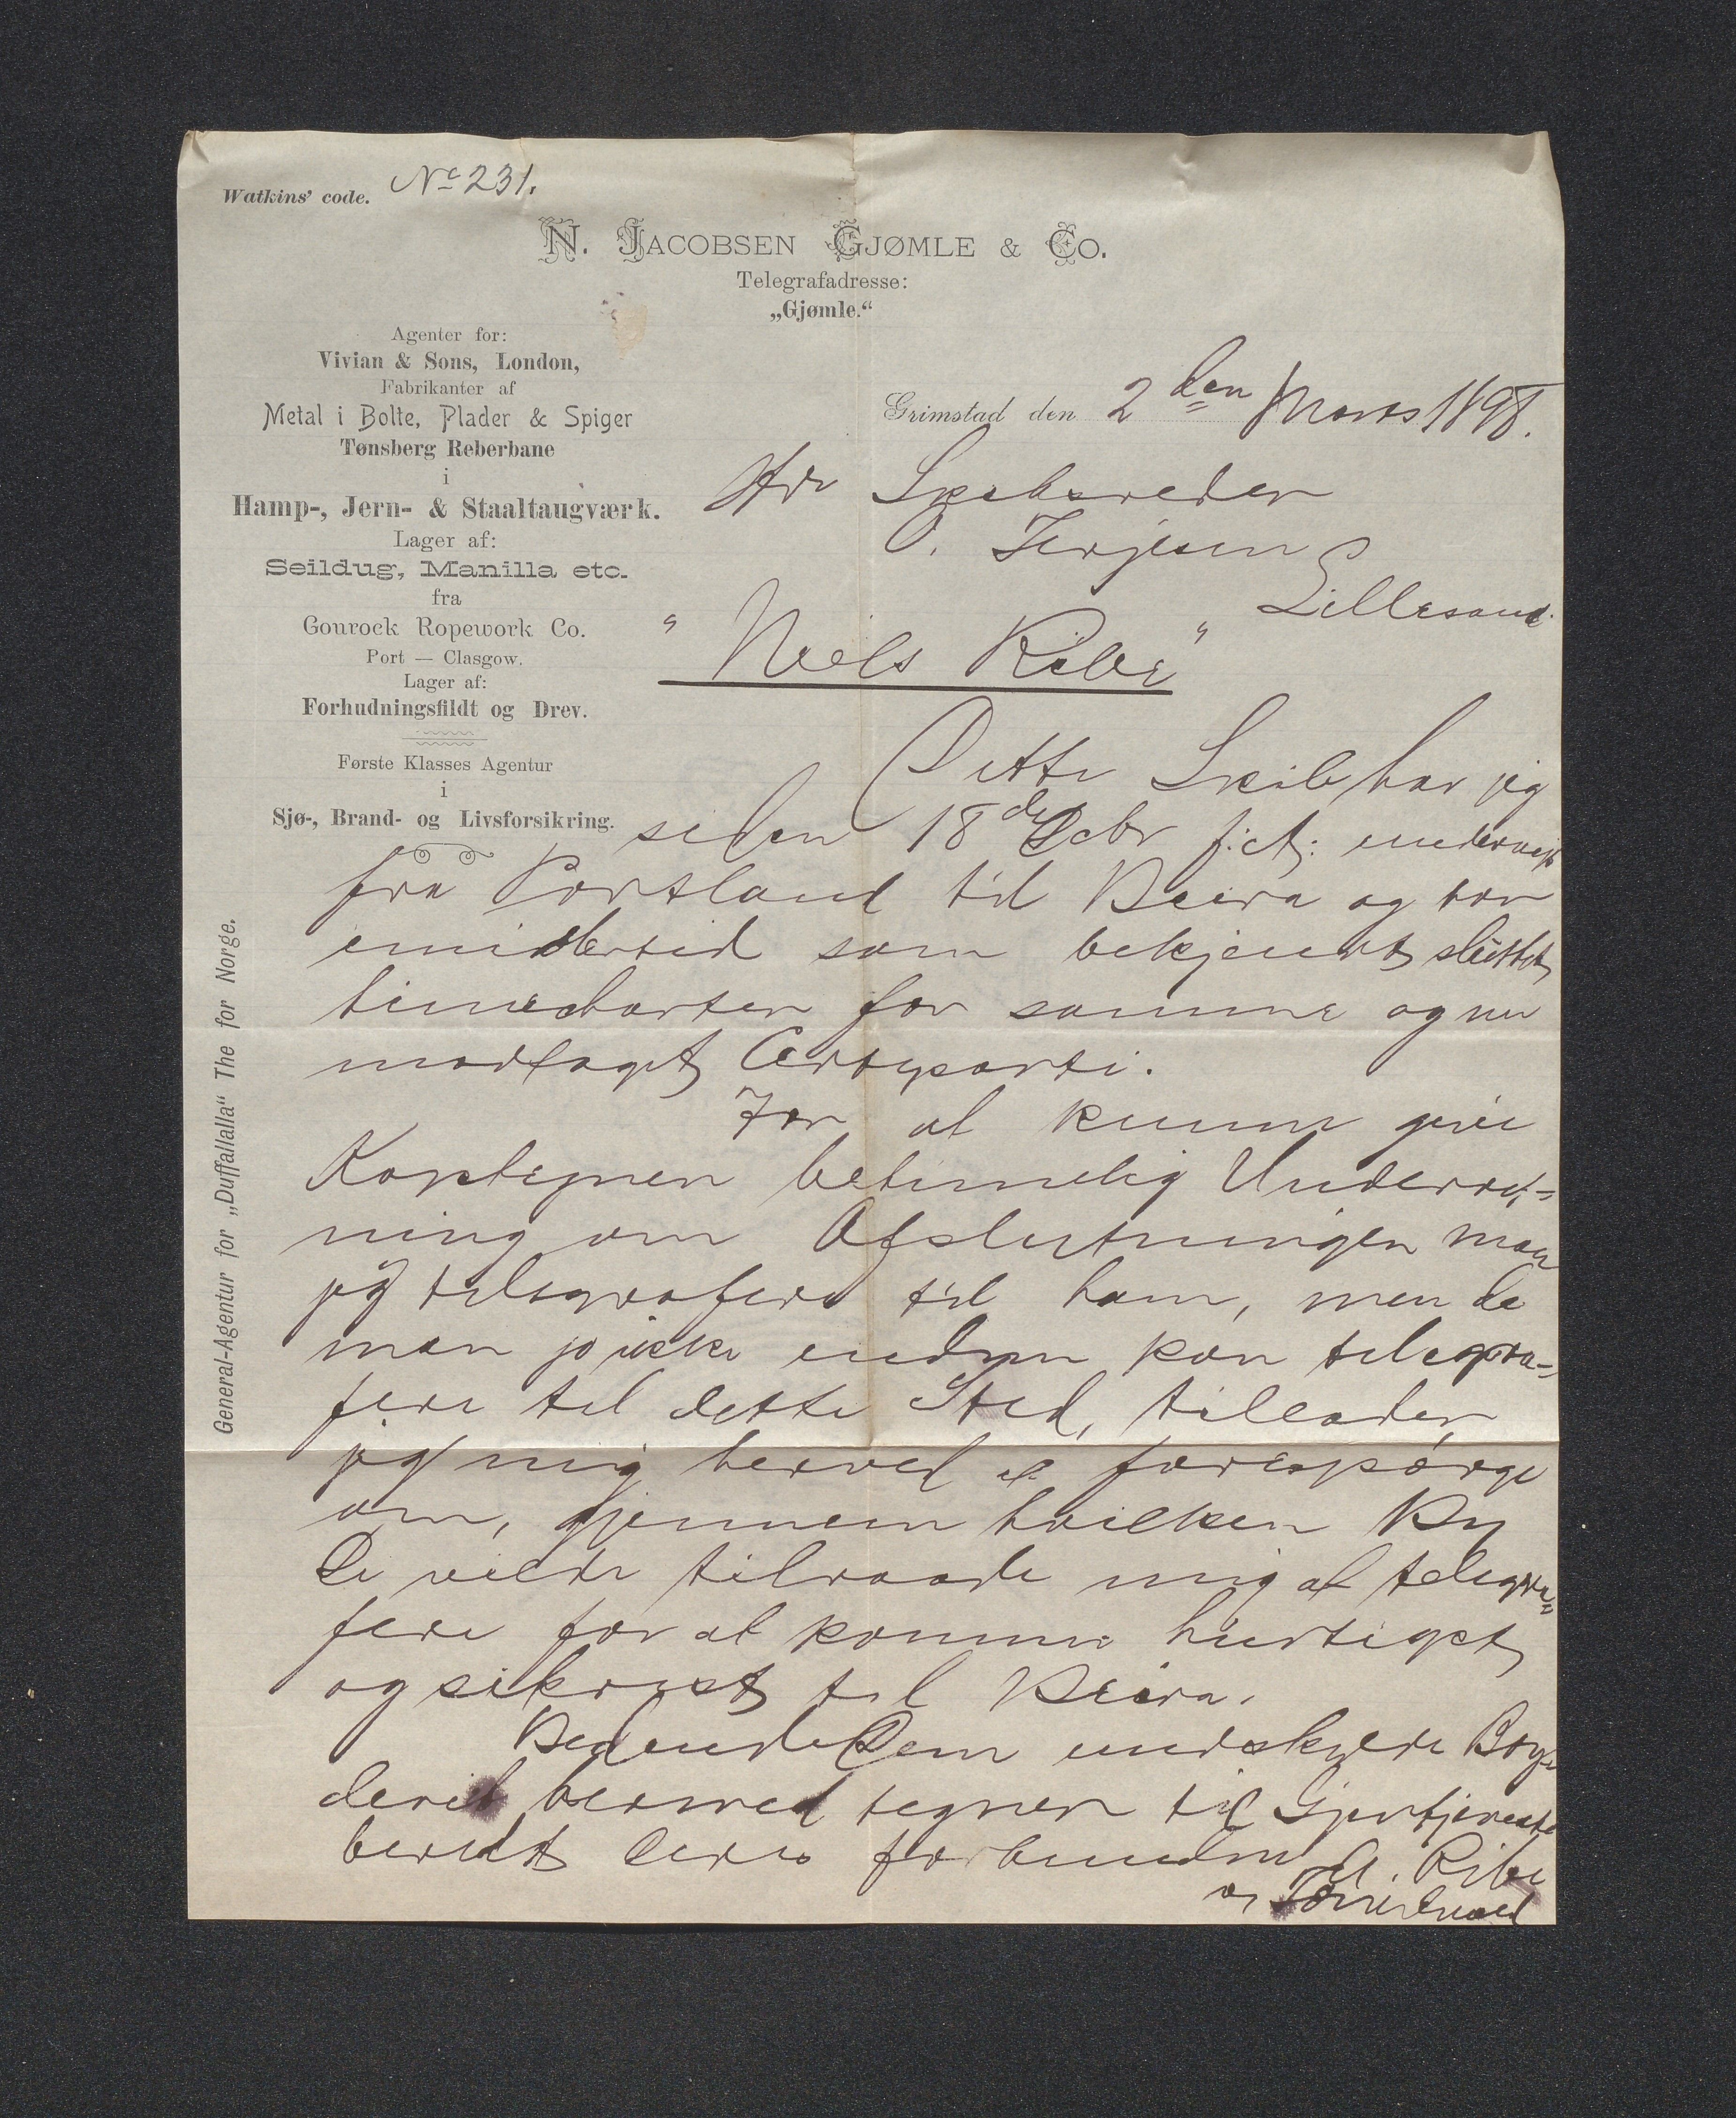 Watkins' code. No 231.
N. JACOBSEN GJØMLE & CO.
Telegrafadresse:
„Gjømle.“
Agenter for:
Vivian & Sons, London,
Fabrikanter af
Metal i Bolte, Plader & Spiger
Tønsberg Reberbane
i
Hamp-, Jern- & Staaltaugværk.
Lager af:
Seildug, Manilla etc.
fra
Gourock Ropework Co.
Port — Glasgow.
Lager af:
Forhudningsfildt og Drev.
Første Klasses Agentur
i
Sjø-, Brand- og Livsforsikring.
General-Agentur for „Duffallalla“ The for Norge.
Grimstad den 2den Marts 1898.
Hr Skibsreder
O. Terjesen
Lillesand.
"Niels Ribe"
Dette Skib har jeg
siden 18de Dcbr f: A: underveis
fra Portland til Beira og har
imidlertid som bekjendt sluttet
timecharter for samme og nu
modtaget Certeparti.
For at kunne give
Kapteinen betimelig Underret=
ning om Afslutningen maa
jeg telegrafere til ham, men da
man jo ikke endnu kan telegra=
fere til dette Sted, tillader
jeg mig herved at forespørge
om, gjennem hvilken By
De vilde tilraade mig at telegra=
fere for at komme hurtigst
og sikrest til Beira.
Bedende Dem undskylde Bry=
deriet hermed tegner til Gjentjeneste
beredt Deres forbundne
N. Ribe